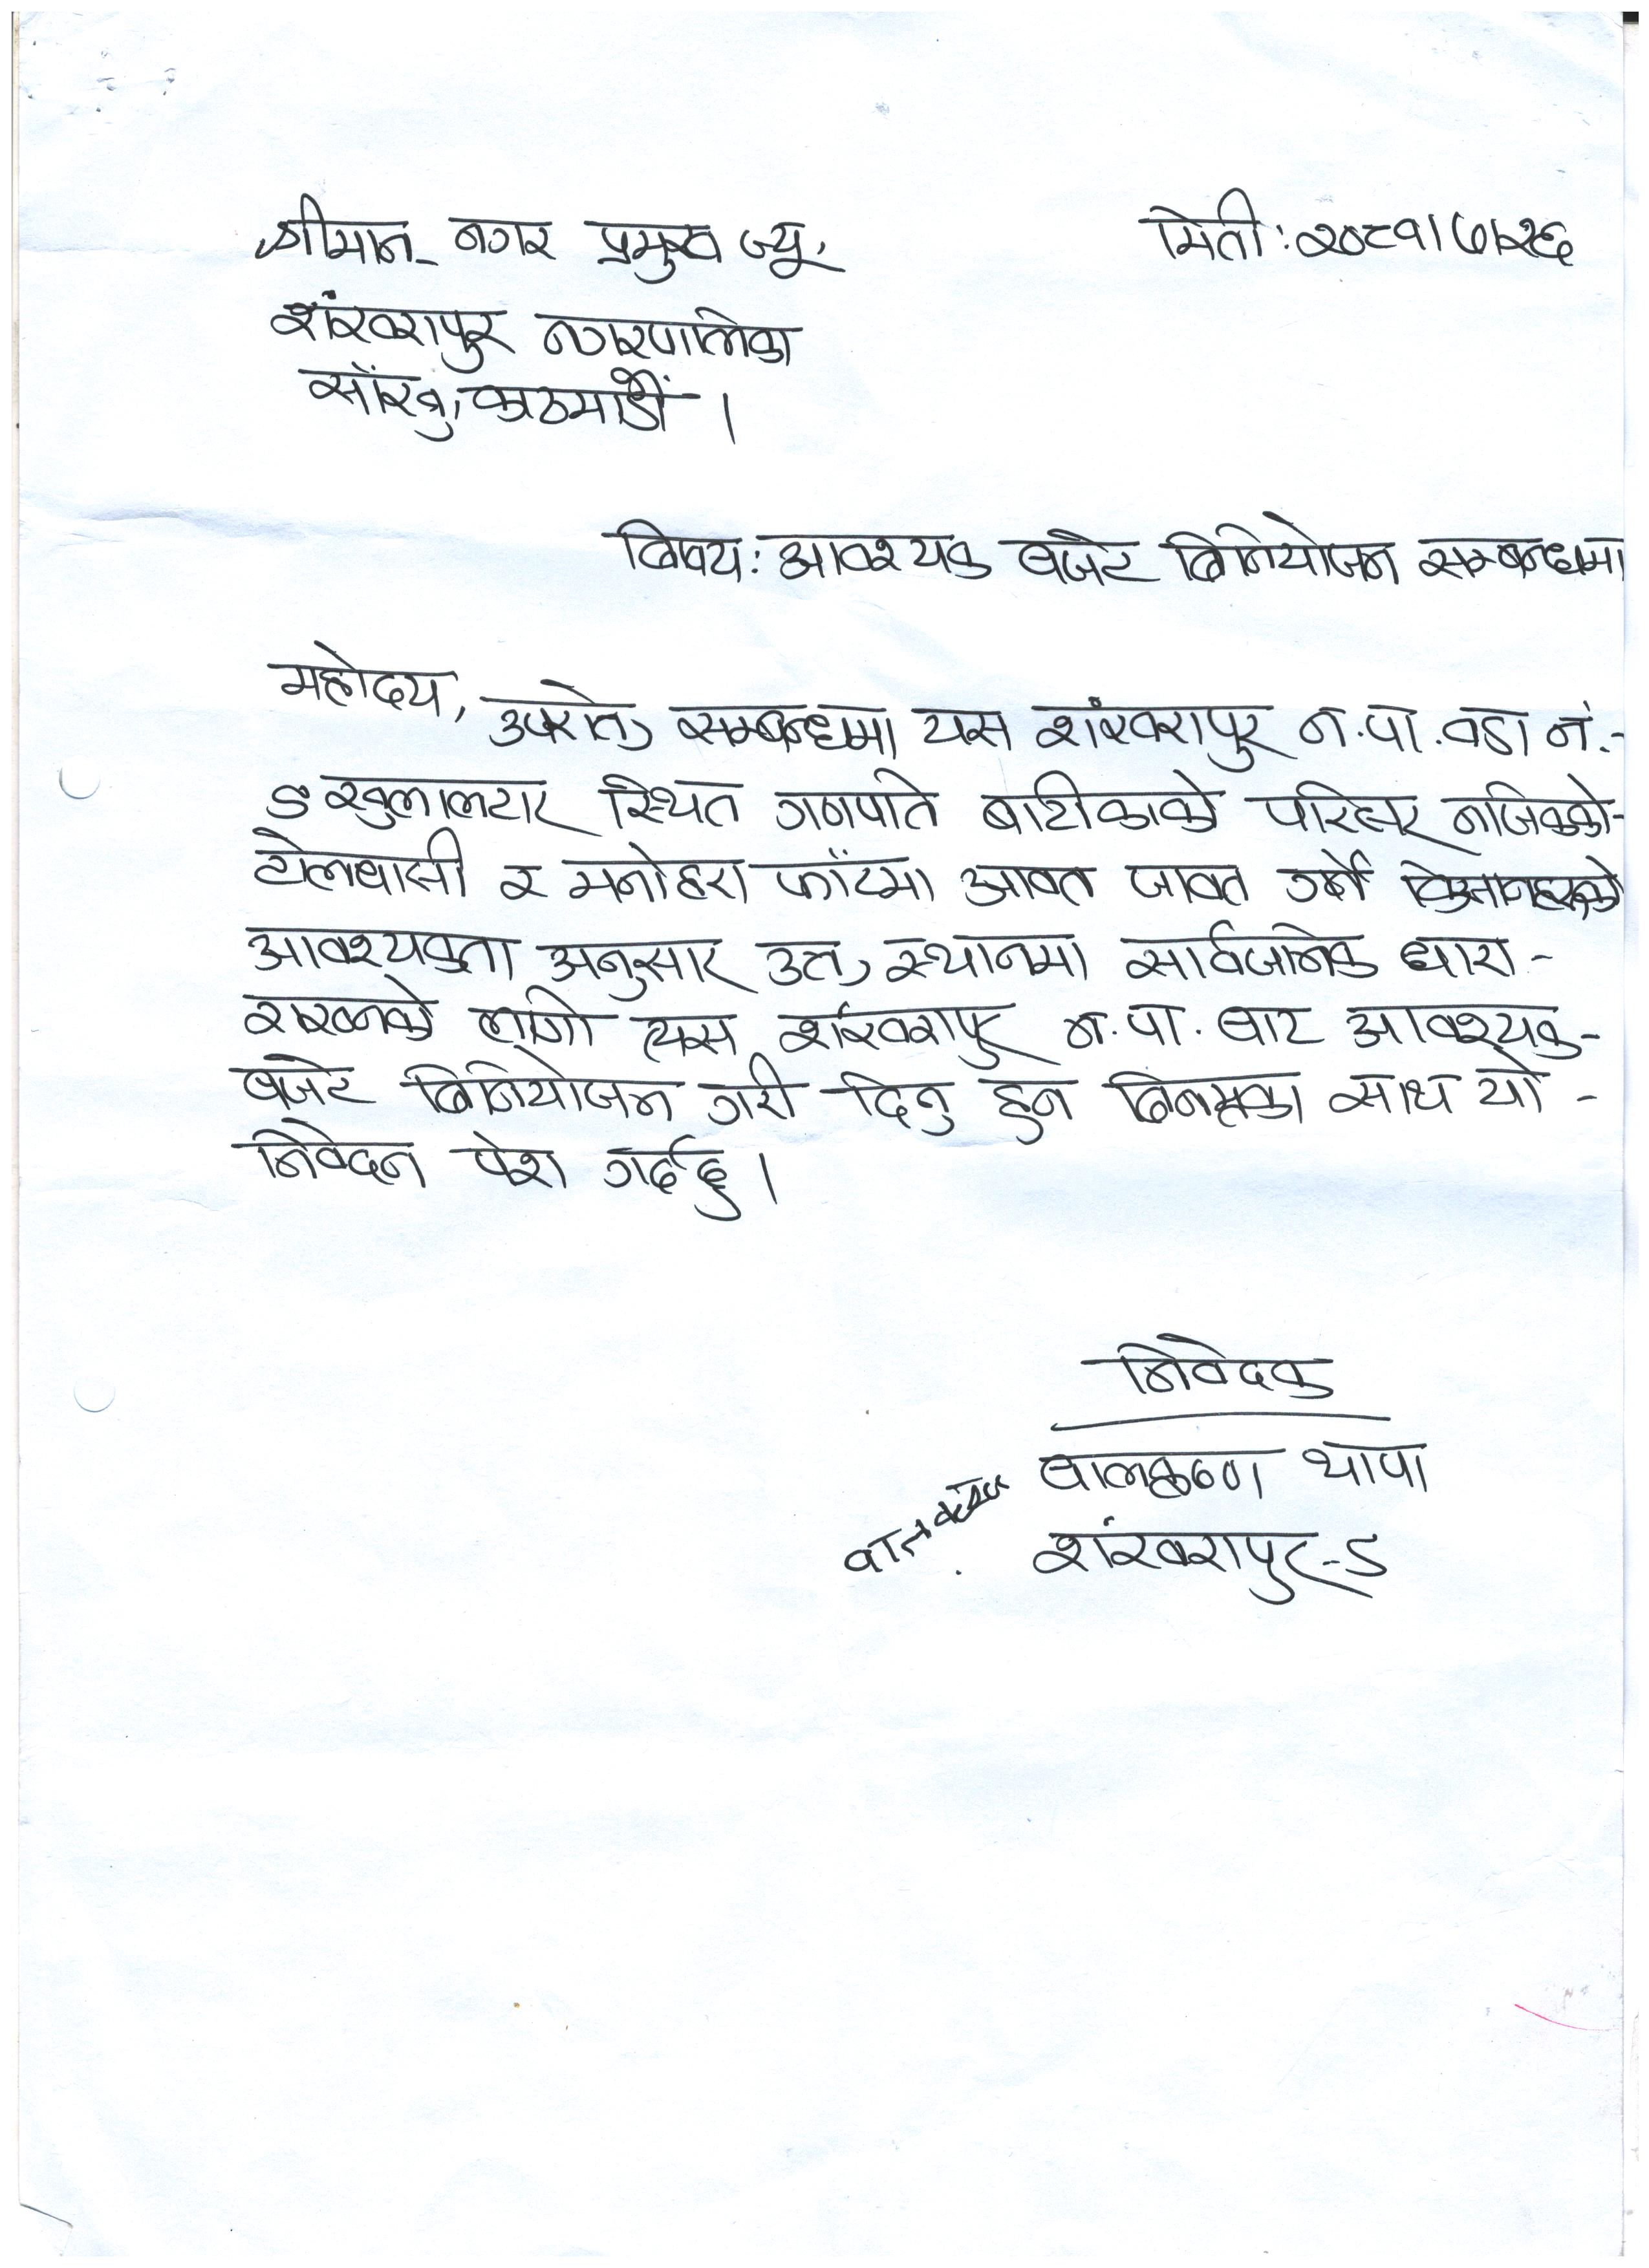 श्रीमान नगर प्रमुख ज्यू, मिती: २०८१।७।२६
शंखरापुर नगरपालिका
साँखु, काठमाडौं ।
विषय: आवश्यक बजेट बिनियोजन सम्बन्धमा
महोदय,
उपरोक्त सम्बन्धमा यस शंखरापुर न.पा. वडा नं.-
५ खुलालटार स्थित गणपति बाटीकाको परिसर नजिकको-
टोलबासी र मनोहरा फाँटमा आवत जावत गर्ने किसानहरुको
आवश्यकता अनुसार उक्त स्थानमा सार्वजनिक धारा-
राख्नको लागी त्यस शंखरापुर न.पा. बाट आवश्यक-
बजेट बिनियोजन गरी दिनु हुन बिनम्रका साथ यो -
निवेदन पेश गर्दछु ।
निवेदक
बालकृष्ण थापा
शंखरापुर-५